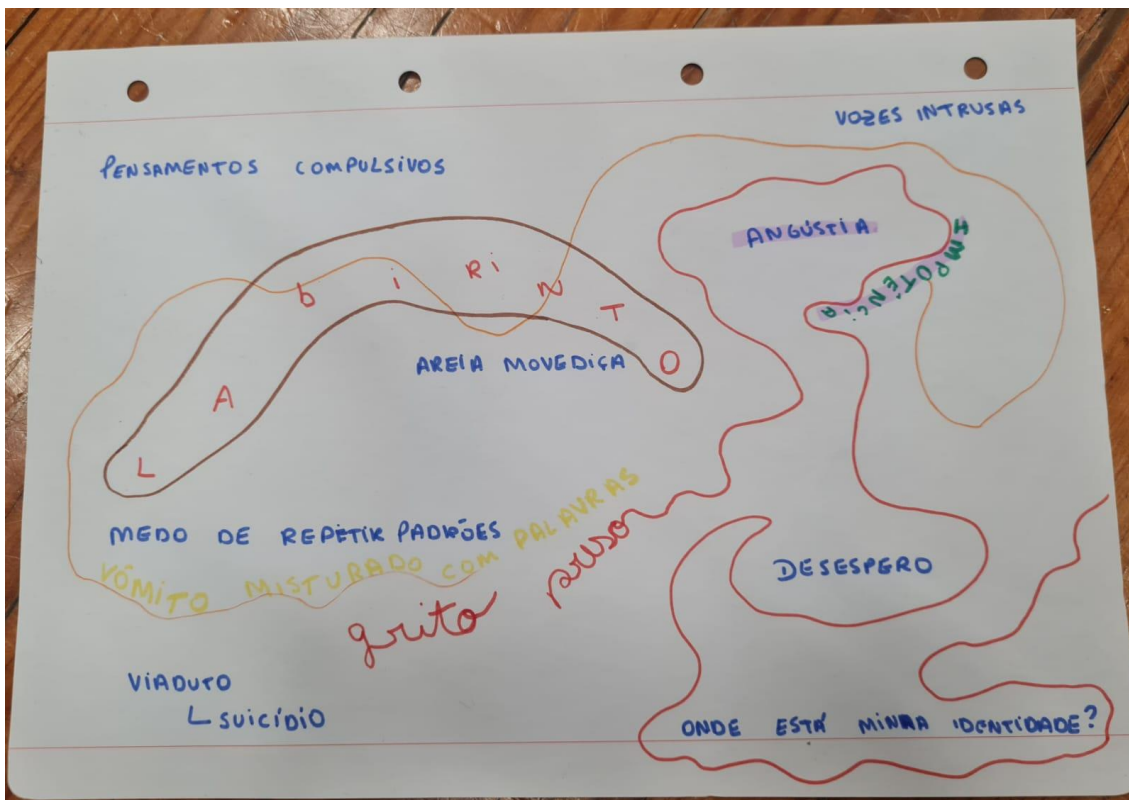 VOZES INTRUSAS
PENSAMENTOS COMPULSIVOS
ANGÚSTIA
IMPOTÊNCIA
LAbiRiNTO
AREIA MOVEDIÇA
MEDO DE REPETIR PADRÕES
VÔMITO MISTURADO COM PALAVRAS
grito preso
DESESPERO
VIADUTO
SUICÍDIO
ONDE ESTÁ MINHA IDENTIDADE?